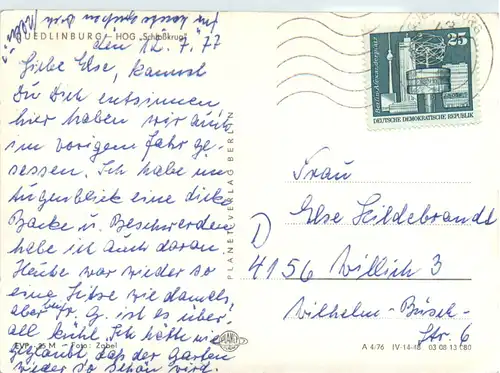 QUEDLINBURG/ HOG „Schloßkrug"
den 12.7.77
Liebe Else, kannst
Du Dich entsinnen
hier haben wir auch
im vorigem Jahr ge-
sessen. Ich habe im
Augenblick eine dicke
Backe u. Beschwerden
habe ich auch daran.
Heute war wieder so
eine Hitze wie damals,
aber G. ist es über
all kühl. Ich hätte nie
geglaubt, daß der Garten
wieder so schön wird.
EVP -,25 M - Foto: Zobel
PLANET-VERLAG BERLIN
PLANET
25
Berlin, Alexanderplatz
DEUTSCHE DEMOKRATISCHE REPUBLIK
Frau
Else Hildebrandt
D
4156 Willich 3
Wilhelm-Busch-
Str. 6
A 4/76 IV-14-48 03 08 13 080